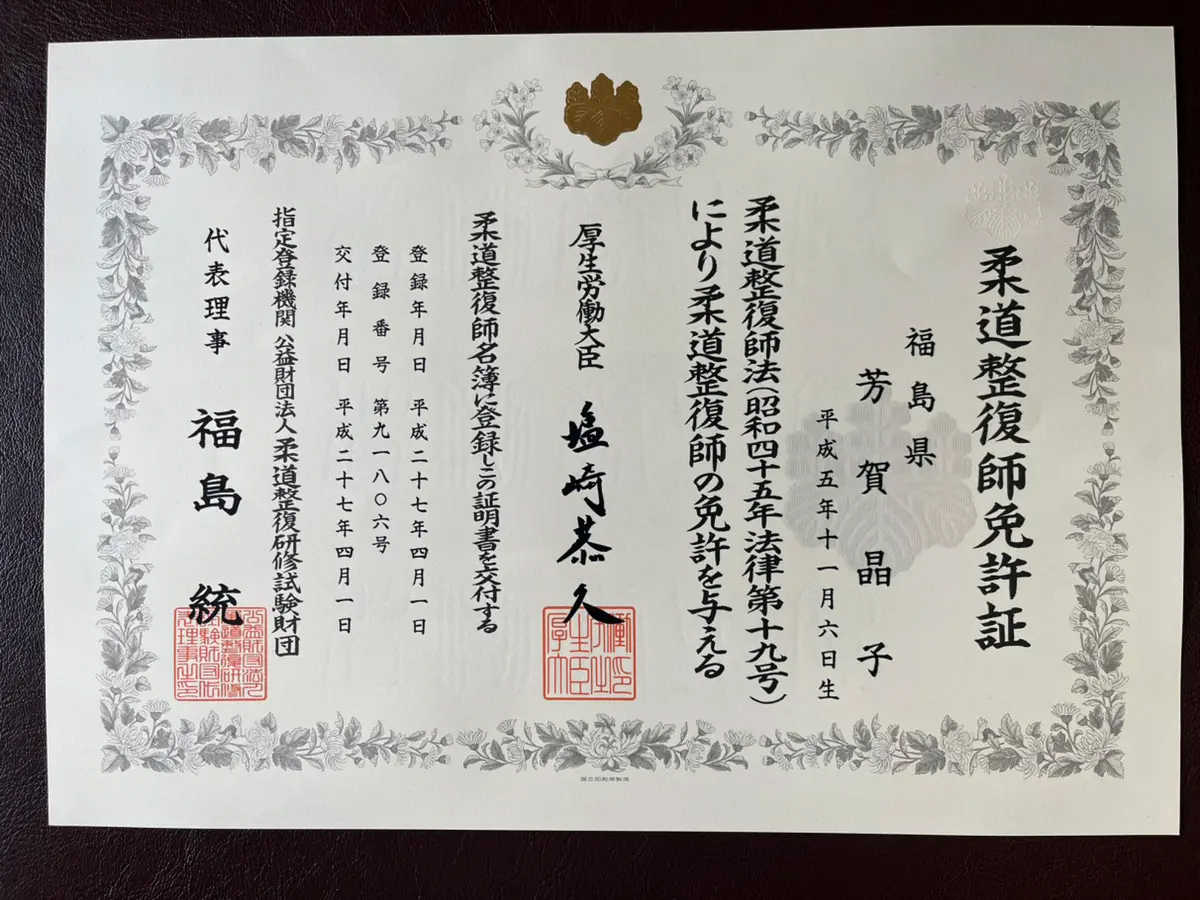 柔道整復師免許証
福島県
芳賀晶子
平成五年十一月六日生
柔道整復師法（昭和四十五年法律第十九号）
により柔道整復師の免許を与える
厚生労働大臣 塩崎恭久
柔道整復師名簿に登録しこの証明書を交付する
登録年月日 平成二十七年四月一日
登録番号 第九一八〇六号
交付年月日 平成二十七年四月一日
指定登録機関 公益財団法人柔道整復研修試験財団
代表理事 福島統